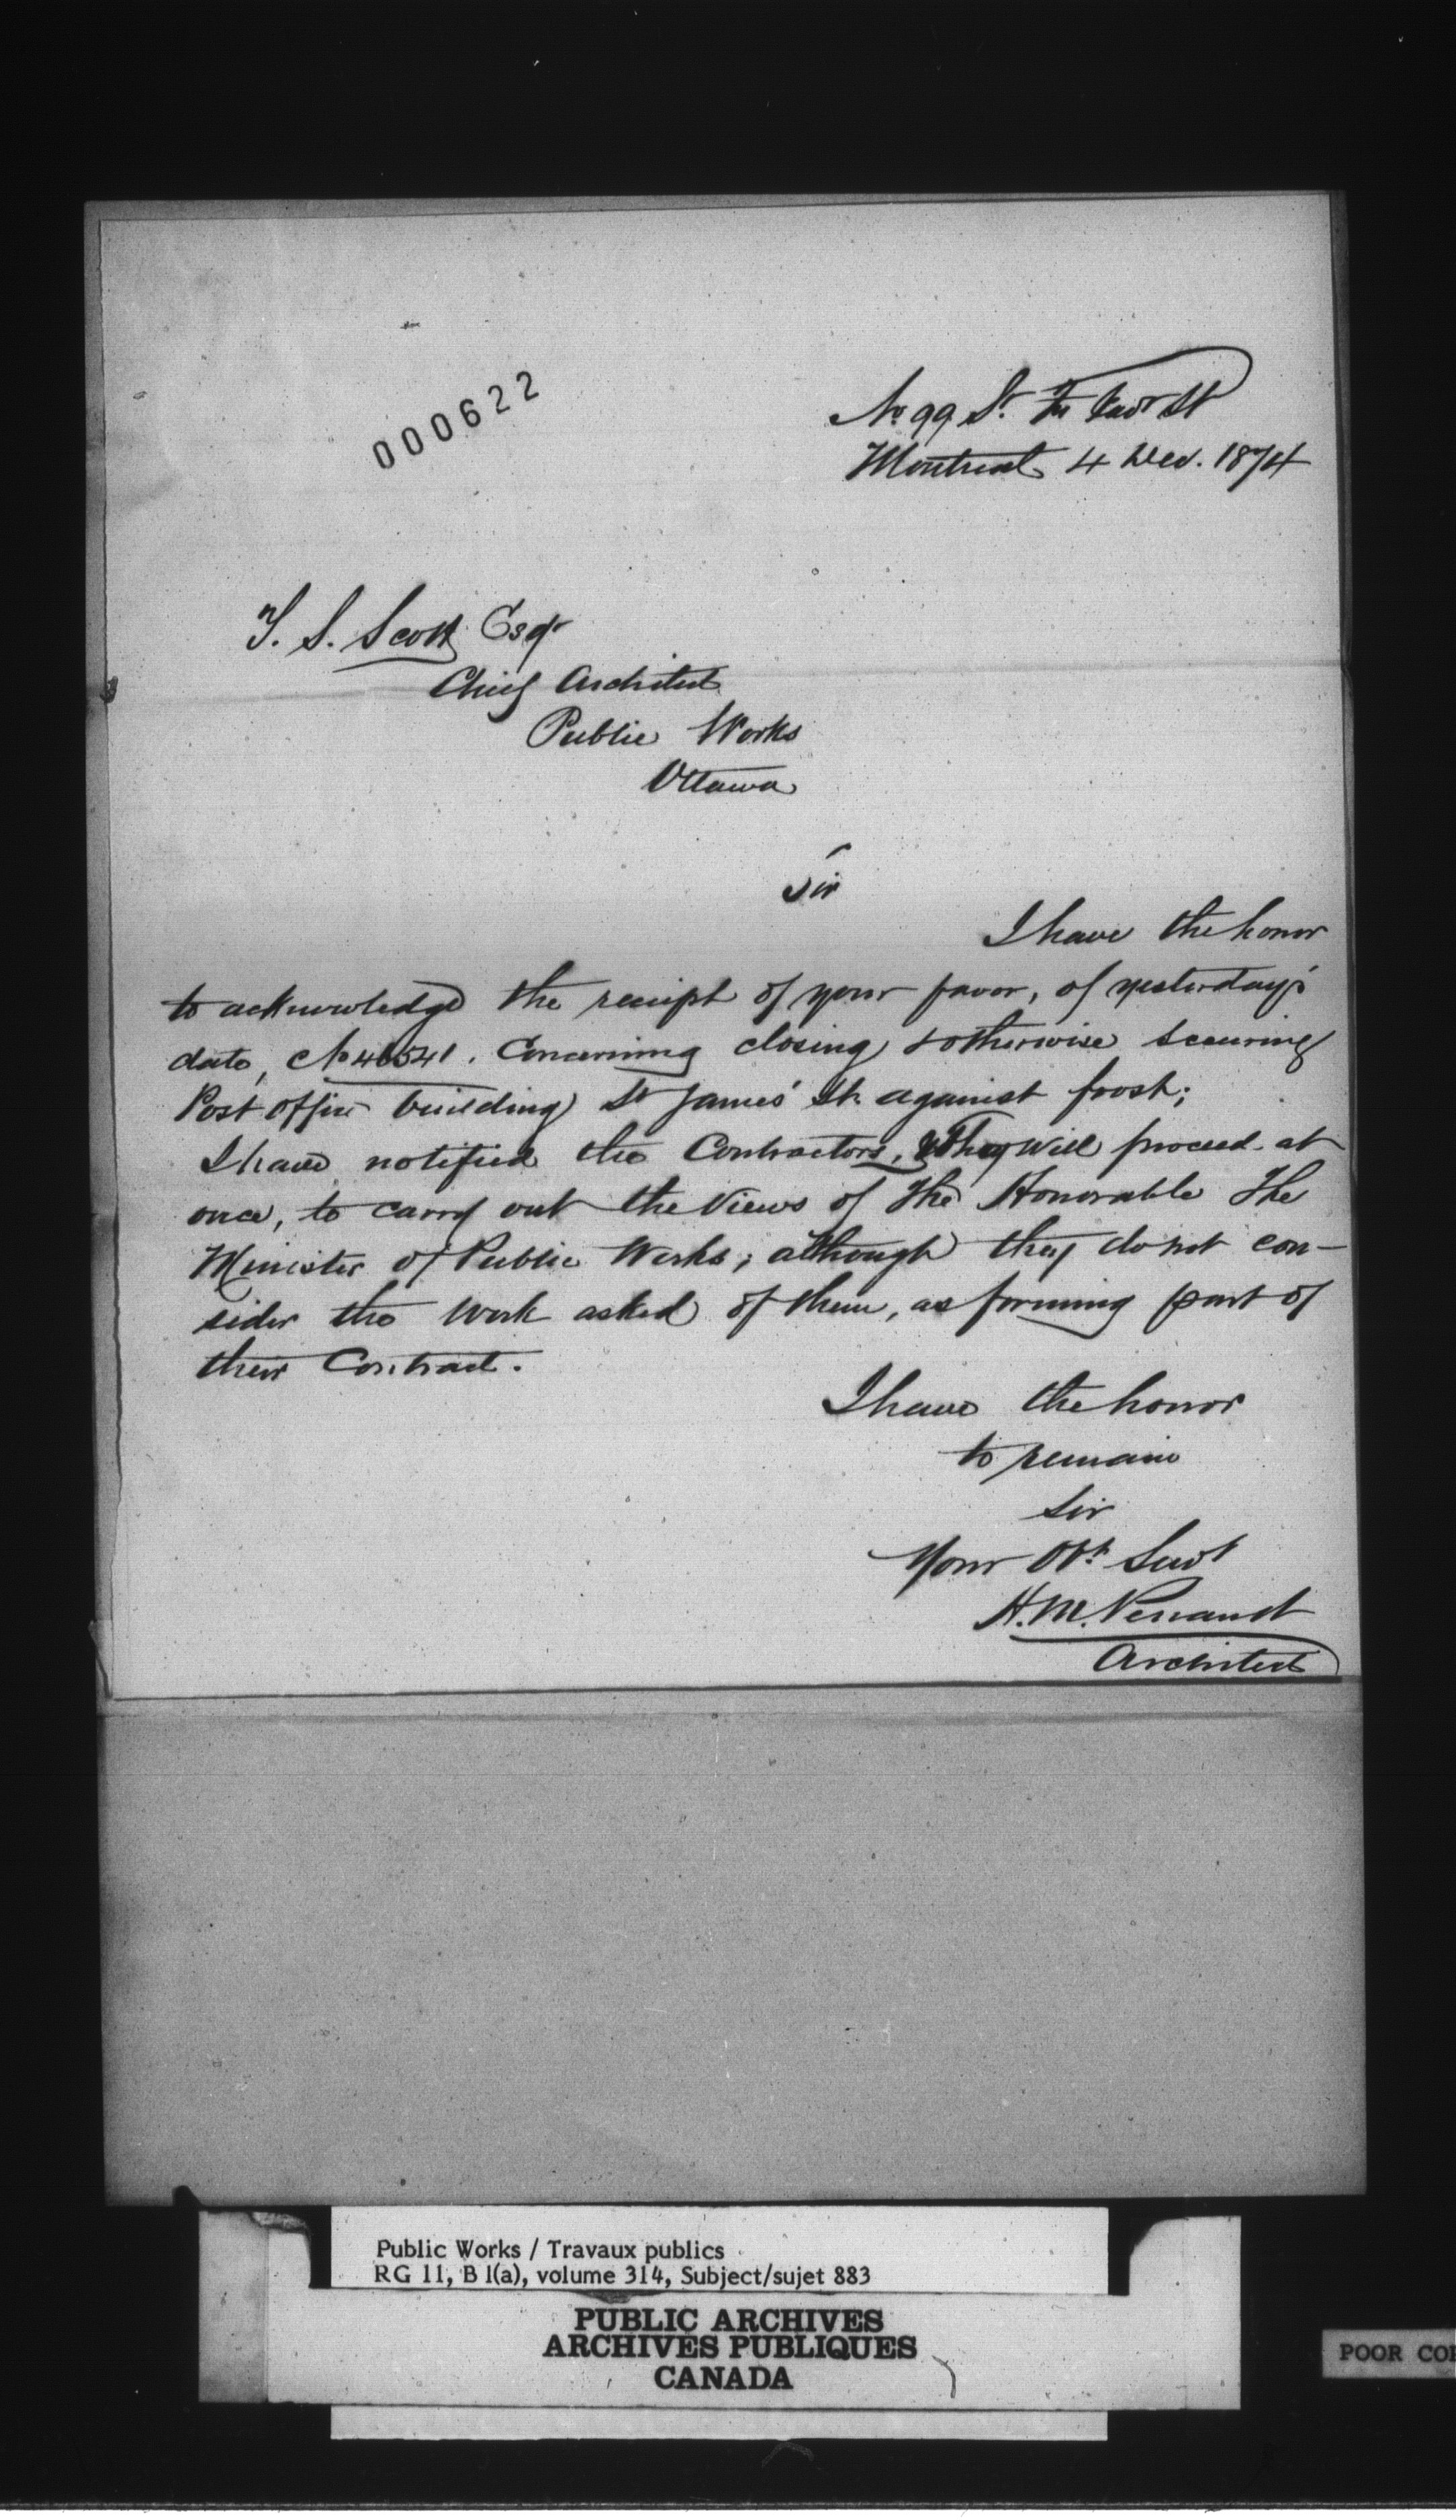 000622
No 99 St. Fr Xavr St
Montreal 4 Dec. 1874
T. S. Scott Esqr
Chief Architect
Public Works
Ottawa
Sir
I have the honor
to acknowledge the receipt of your favor, of yesterday's
date, No 46541. Concerning closing & otherwise securing
Post Office building St James' St. against frost;
I have notified the Contractors, & They will proceed at
once, to carry out the views of The Honorable The
Minister of Public Works; although they do not con-
sider the work asked of them, as forming part of
their Contract.
I have the honor
to remain
Sir
Your Obt. Servt
H. M. Perrault
Architect
Public Works / Travaux publics
RG 11, B 1(a), volume 314, Subject/sujet 883
PUBLIC ARCHIVES
ARCHIVES PUBLIQUES
CANADA
POOR COP